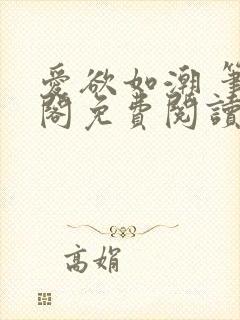 愛欲如潮 筆
閣免費閱讀
高娟